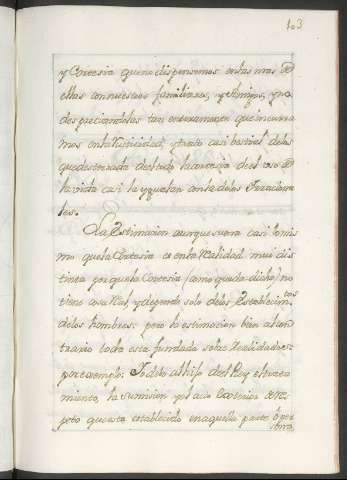 103
y Cortesia que no dispensemos en las mas de
ellas con nuestros familiares, y Amigos, y no
despreciandolas tan enteramente que incurra
mos en la rusticidad, y trato casi bestial de los
que desterrada de todo la
la vida casi la ygualan con la de los Irraciona
les.
La Estimacion aunque suena casi lo mis
mo que la Cortesia es en la realidad mui dis
tinta porque la Cortesia (como queda dicho) no
tiene cosa Real, y depende solo del Establecimtos
de los hombres: pero la estimacion bien al con
trario toda esta fundada sobre Realidades:
por exemplo: Yo doi al hijo del Rey el trata
miento, la sumision y el acio exterior de res
peto que esta establecido en aquella parte ó por